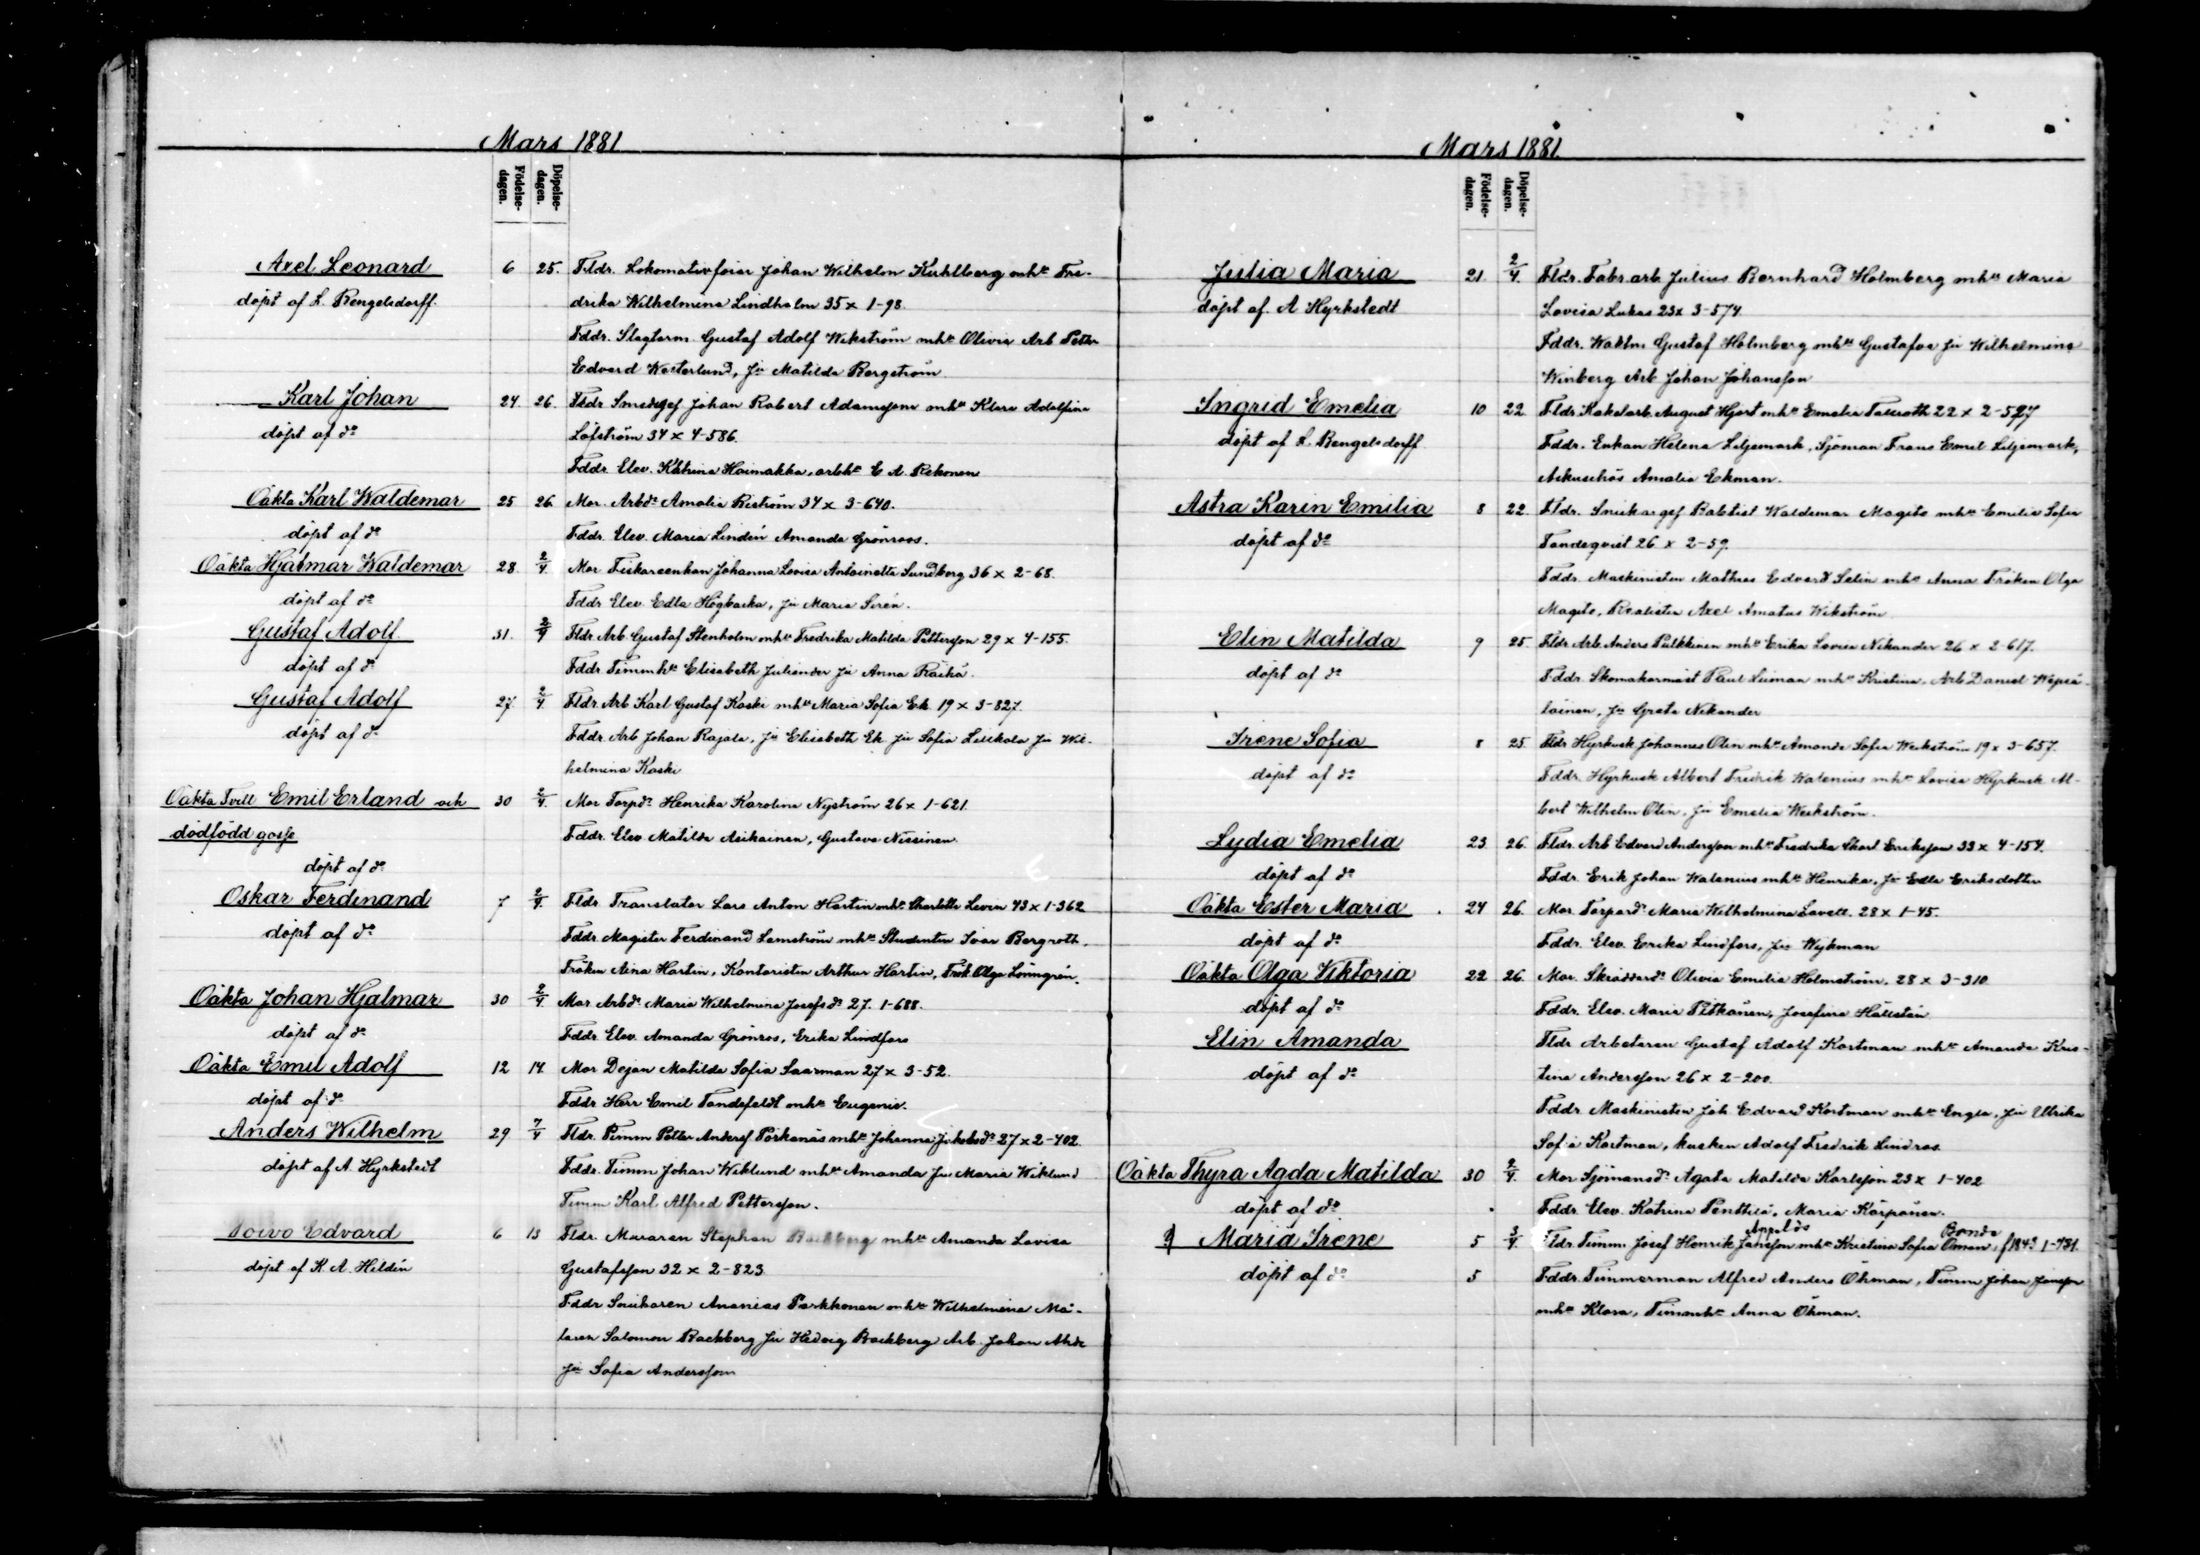 Mars 1881
Födelse-dagen. Döpelse-dagen.
Axel Leonard 6 25. Fldr. Lokomotivförar Johan Wilhelm Kuhlberg mhu Fre-
döpt af L. Bengelsdorff. drika Wilhelmina Lindholm 35 x 1-98.
Fddr. Slagtarm. Gustaf Adolf Wikström mhu Olivia Arb Petter
Edvard Westerlund, Ju Matilda Bergström
Karl Johan 24. 26. Fldr Smedgef Johan Robert Adamsson mhu Klara Adolfina
döpt af do Löfström 34 x 4-586.
Fddr Elev. Katrina Haimakka, arbhu E A. Rekonen
Oäkta Karl Waldemar 25 26. Mor. Arbda Amalia Biström 34 x 3-640.
döpt af do Fddr. Elev. Maria Lindén Amanda Grönroos.
Oäkta Hjalmar Waldemar 28. 2/4 Mor Fiskareenkan Johanna Lovisa Antoinetta Sundberg 36 x 2-68.
döpt af do Fddr Elev. Edla Högbacka, Ju Maria Sirén.
Gustaf Adolf 31. 2/4 Fldr. Arb. Gustaf Stenholm mhu Fredrika Matilda Pettersson 29 x 4-155
döpt af do Fddr Timmhu Elisabeth Juliander Ju Anna Räihä.
Gustaf Adolf 27. 2/4 Fldr. Arb Karl Gustaf Koski mhu Maria Sofia Ek. 19 x 3-827.
döpt af do Fddr. Arb Johan Rajala, Ju Elisabeth Ek Ju Sofia Ju Wil-
helmina Koski
Oäkta Tvill Emil Erland och 30 2/4. Mor Torpda Henrika Karolina Nyström 26 x 1-621.
dödfödd gosse Fddr. Elev Matilda Asikainen, Gustava Nissinen.
döpt af do
Oskar Ferdinand 7 2/4. Fldr Translator Lars Anton Hartin mhu Charlotte Levin 43 x 1-362
döpt af do Fddr Magister Ferdinand Lemström mhu Studenten Ivar Bergroth.
Fröken Aina Hartin, Kontoristen Arthur Hartin, Frök Olga Lönngrén.
Oäkta Johan Hjalmar 30 2/4. Mor Arbda Maria Wilhelmina Josefsda 27. 1-688.
döpt af do Fddr Elev. Amanda Grönros, Erika Lindfors
Oäkta Emil Adolf 12 14. Mor Dejan Matilda Sofia Saarman 27 x 3-52.
döpt af do Fddr Herr Emil Tandefeldt mhu Eugenie.
Anders Wilhelm 29 7/4 Fldr. Timm Petter Andersf Porkanäs mhu Johanna Jakobsda 27 x 2-402.
döpt af A. Hyrkstedt Fddr. Timm Johan Wiklund mhu Amanda Ju Maria Wiklund
Timm Karl Alfred Pettersson.
Toivo Edvard 6 13 Fldr. Muraren Stephan Backberg mhu Amanda Lovisa
döpt af K. A. Heldén Gustafsson 32 x 2-823.
Fddr Snickaren Ananias Parkkonen mhu Wilhelmina Må-
laren Salomon Backberg Ju Hedvig Backberg Arb. Johan
Ju Sofia Andersson
Mars 1881.
Födelse-dagen. Döpelse-dagen.
Julia Maria 21. 2/4. Fldr. Fabr. arb Julius Bernhard Holmberg mhu Maria
döpt af. A Hyrkstedt Lovisa Lukas 23 x 3-574
Fddr. Waktm Gustaf Holmberg mhu Gustafva Ju Wilhelmina
Winberg Arb Johan Johansson
Ingrid Emelia 10 22 Fldr. Kakelarb. August Hjort mhu Emelia Tallroth 22 x 2-597
döpt af L. Bengelsdorff Fddr. Enkan Helena Liljemark, Sjöman Frans Emil Liljemark,
Amalia Ekman.
Astra Karin Emilia 8 22. Fldr. Snickargef Babtist Waldemar Magito mhu Emilia Sofia
döpt af do Tandeqvist 26 x 2-59.
Fddr. Maskinisten Mathias Edvard Selin mhu Anna Fröken Olga
Magito, Realisten Axel Amatus Wikström
Elin Matilda 9 25 Fldr Arb. Anders Pulkkinen mhu Erika Lovisa Nikander 26 x 2-617.
döpt af do Fddr. Skomakarmäst Paul Leiman mhu Kristina, Arb Daniel Wepsä-
läinen, Ju Greta Nikander
Irene Sofia 8 25. Fldr Hyrkusk Johannes Olin mhu Amanda Sofia Weckström 19 x 3-657.
döpt af do Fddr. Hyrkusk Albert Fredrik Walenius mhu Lovisa Hyrkusk Al-
bert Wilhelm Olin, Ju Emelia Weckström.
Lydia Emelia 23 26. Fldr. Arb Edvard Andersson mhu Fredrika Charl Eriksson 33 x 4-154.
döpt af do Fddr. Erik Johan Walenius mhu Henrika, Ju Edla Eriksdotter
Oäkta Ester Maria 24 26. Mor Torpard. Maria Wilhelmina Lavell. 28 x 1-45.
döpt af do Fddr. Elev. Erika Lindfors, Ju Wykman
Oäkta Olga Viktoria 22 26. Mor. Skräddarda Olivia Emilia Holmström. 28 x 3-310
döpt af do Fddr. Elev. Maria Pitkänen, Josefina Hällstén
Elin Amanda Fldr Arbetaren Gustaf Adolf Kortman mhu Amanda Kris-
döpt af do tina Andersson 26 x 2-200.
Fddr Maskinisten Joh Edvard Kortman mhu Engla, Ju Ulrika
Sofia Kortman, kusken Adolf Fredrik Lindros
Oäkta Thyra Agda Matilda 30 2/4. Mor Sjömansda Agata Matilda Karlsson 23 x 1-402
döpt af do Fddr Elev. Katrina Penttilä, Maria Karpanen.
Bonde
Maria Irene 5 3/4. Fldr Timm. Josef Henrik Jansson mhu Kristina Sofia Öman, f 1843 1-731.
döpt af do 5 Fddr. Timmerman Alfred Anders Öhman, Timm Johan Jansson
mhu Klara, Timmhu Anna Öhman.